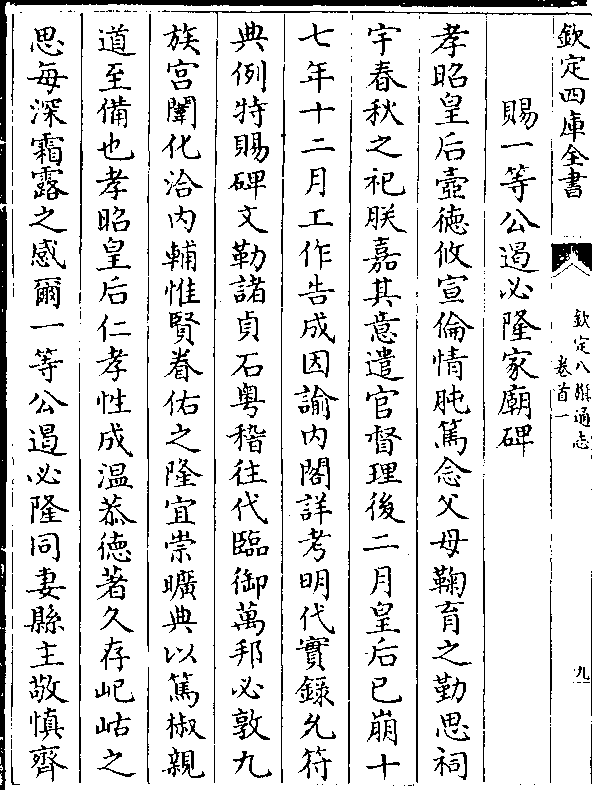 欽定四庫全書
欽定八旗通志
卷首一
九
賜一等公遏必隆家廟碑
孝昭皇后壼徳攸宣倫情肫篤念父母鞠育之勤思祠
宇春秋之祀朕嘉其意遣官督理後二月皇后已崩十
七年十二月工作告成因諭内閣詳考明代實録允符
典例特賜碑文勒諸貞石粤稽往代臨御萬邦必敦九
族宫闈化洽内輔惟賢眷佑之隆宜崇曠典以篤椒親
道至備也孝昭皇后仁孝性成温恭徳著久存屺岵之
思每深霜露之感爾一等公遏必隆同妻縣主敬慎齊